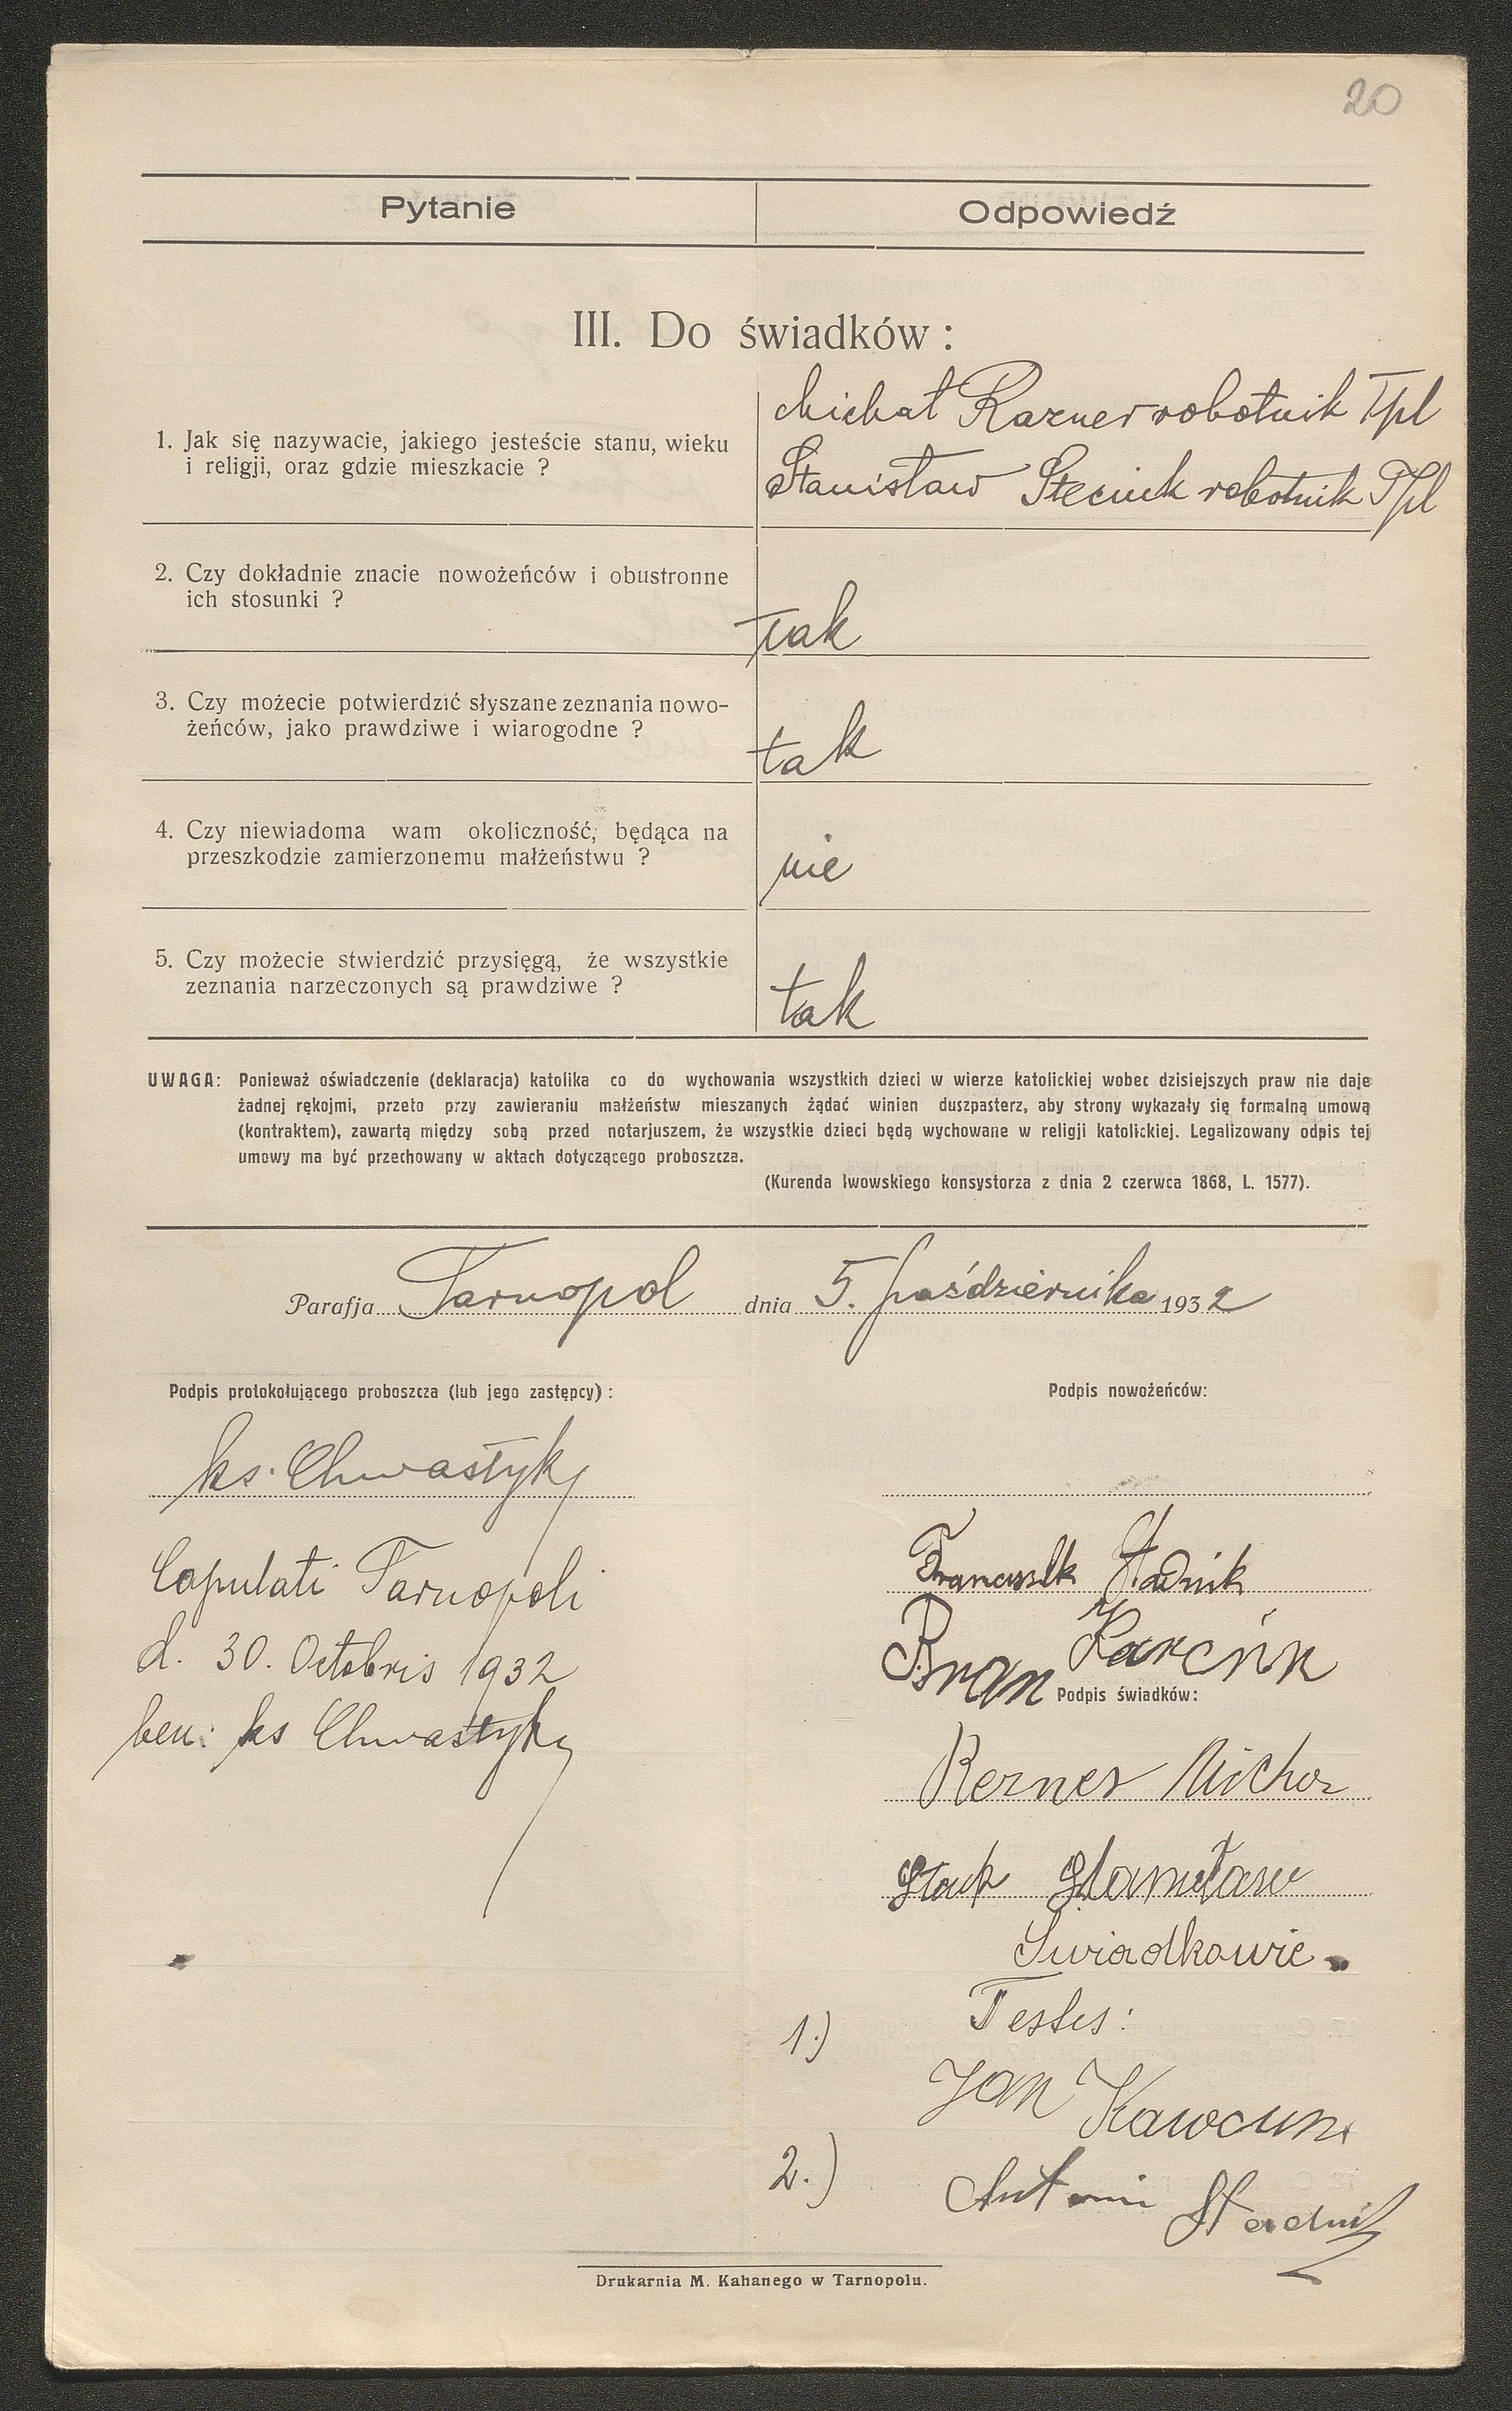 20
Pytanie
Odpowiedź
III. Do świadków:
1. Jak się nazywacie, jakiego jesteście stanu, wieku
i religji, oraz gdzie mieszkacie ?
Michał Razner robotnik Tpl
Stanisław Steciuk robotnik Tpl
2. Czy dokładnie znacie nowożeńców i obustronne
ich stosunki ?
tak
3. Czy możecie potwierdzić słyszane zeznania nowo-
żeńców, jako prawdziwe i wiarogodne ?
tak
4. Czy niewiadoma wam okoliczność, będąca na
przeszkodzie zamierzonemu małżeństwu ?
nie
5. Czy możecie stwierdzić przysięgą, że wszystkie
zeznania narzeczonych są prawdziwe ?
tak
UWAGA: Ponieważ oświadczenie (deklaracja) katolika co do wychowania wszystkich dzieci w wierze katolickiej wobec dzisiejszych praw nie daje
żadnej rękojmi, przeto przy zawieraniu małżeństw mieszanych żądać winien duszpasterz, aby strony wykazały się formalną umową
(kontraktem), zawartą między sobą przed notarjuszem, że wszystkie dzieci będą wychowane w religji katolickiej. Legalizowany odpis tej
umowy ma być przechowany w aktach dotyczącego proboszcza.
(Kurenda lwowskiego konsystorza z dnia 2 czerwca 1868, L. 1577).
Parafja Tarnopol dnia 5. października 1932
Podpis protokołującego proboszcza (lub jego zastępcy) :
ks. Chwastyk
Copulati Tarnopoli
d. 30. Octobris 1932
ben: ks Chwastyk
Podpis nowożeńców:
Stadnik
Podpis świadków:
Rezner
Stanisław
Świadkowie
Testes:
1.)
Jan
2.)
Antoni Stadnik
Drukarnia M. Kahanego w Tarnopolu.